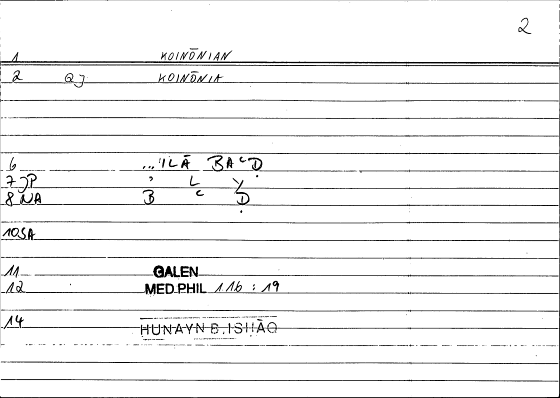 2
1 KOINŌNIAN
2 QJ KOINŌNIA
6 ...'ILĀ BAʿḌ
7 JP ' L Y
8 NA B ʿ Ḍ
10 SA
11 GALEN
12 MED.PHIL 116 : 19
14 HUNAYN B. ISHĀQ